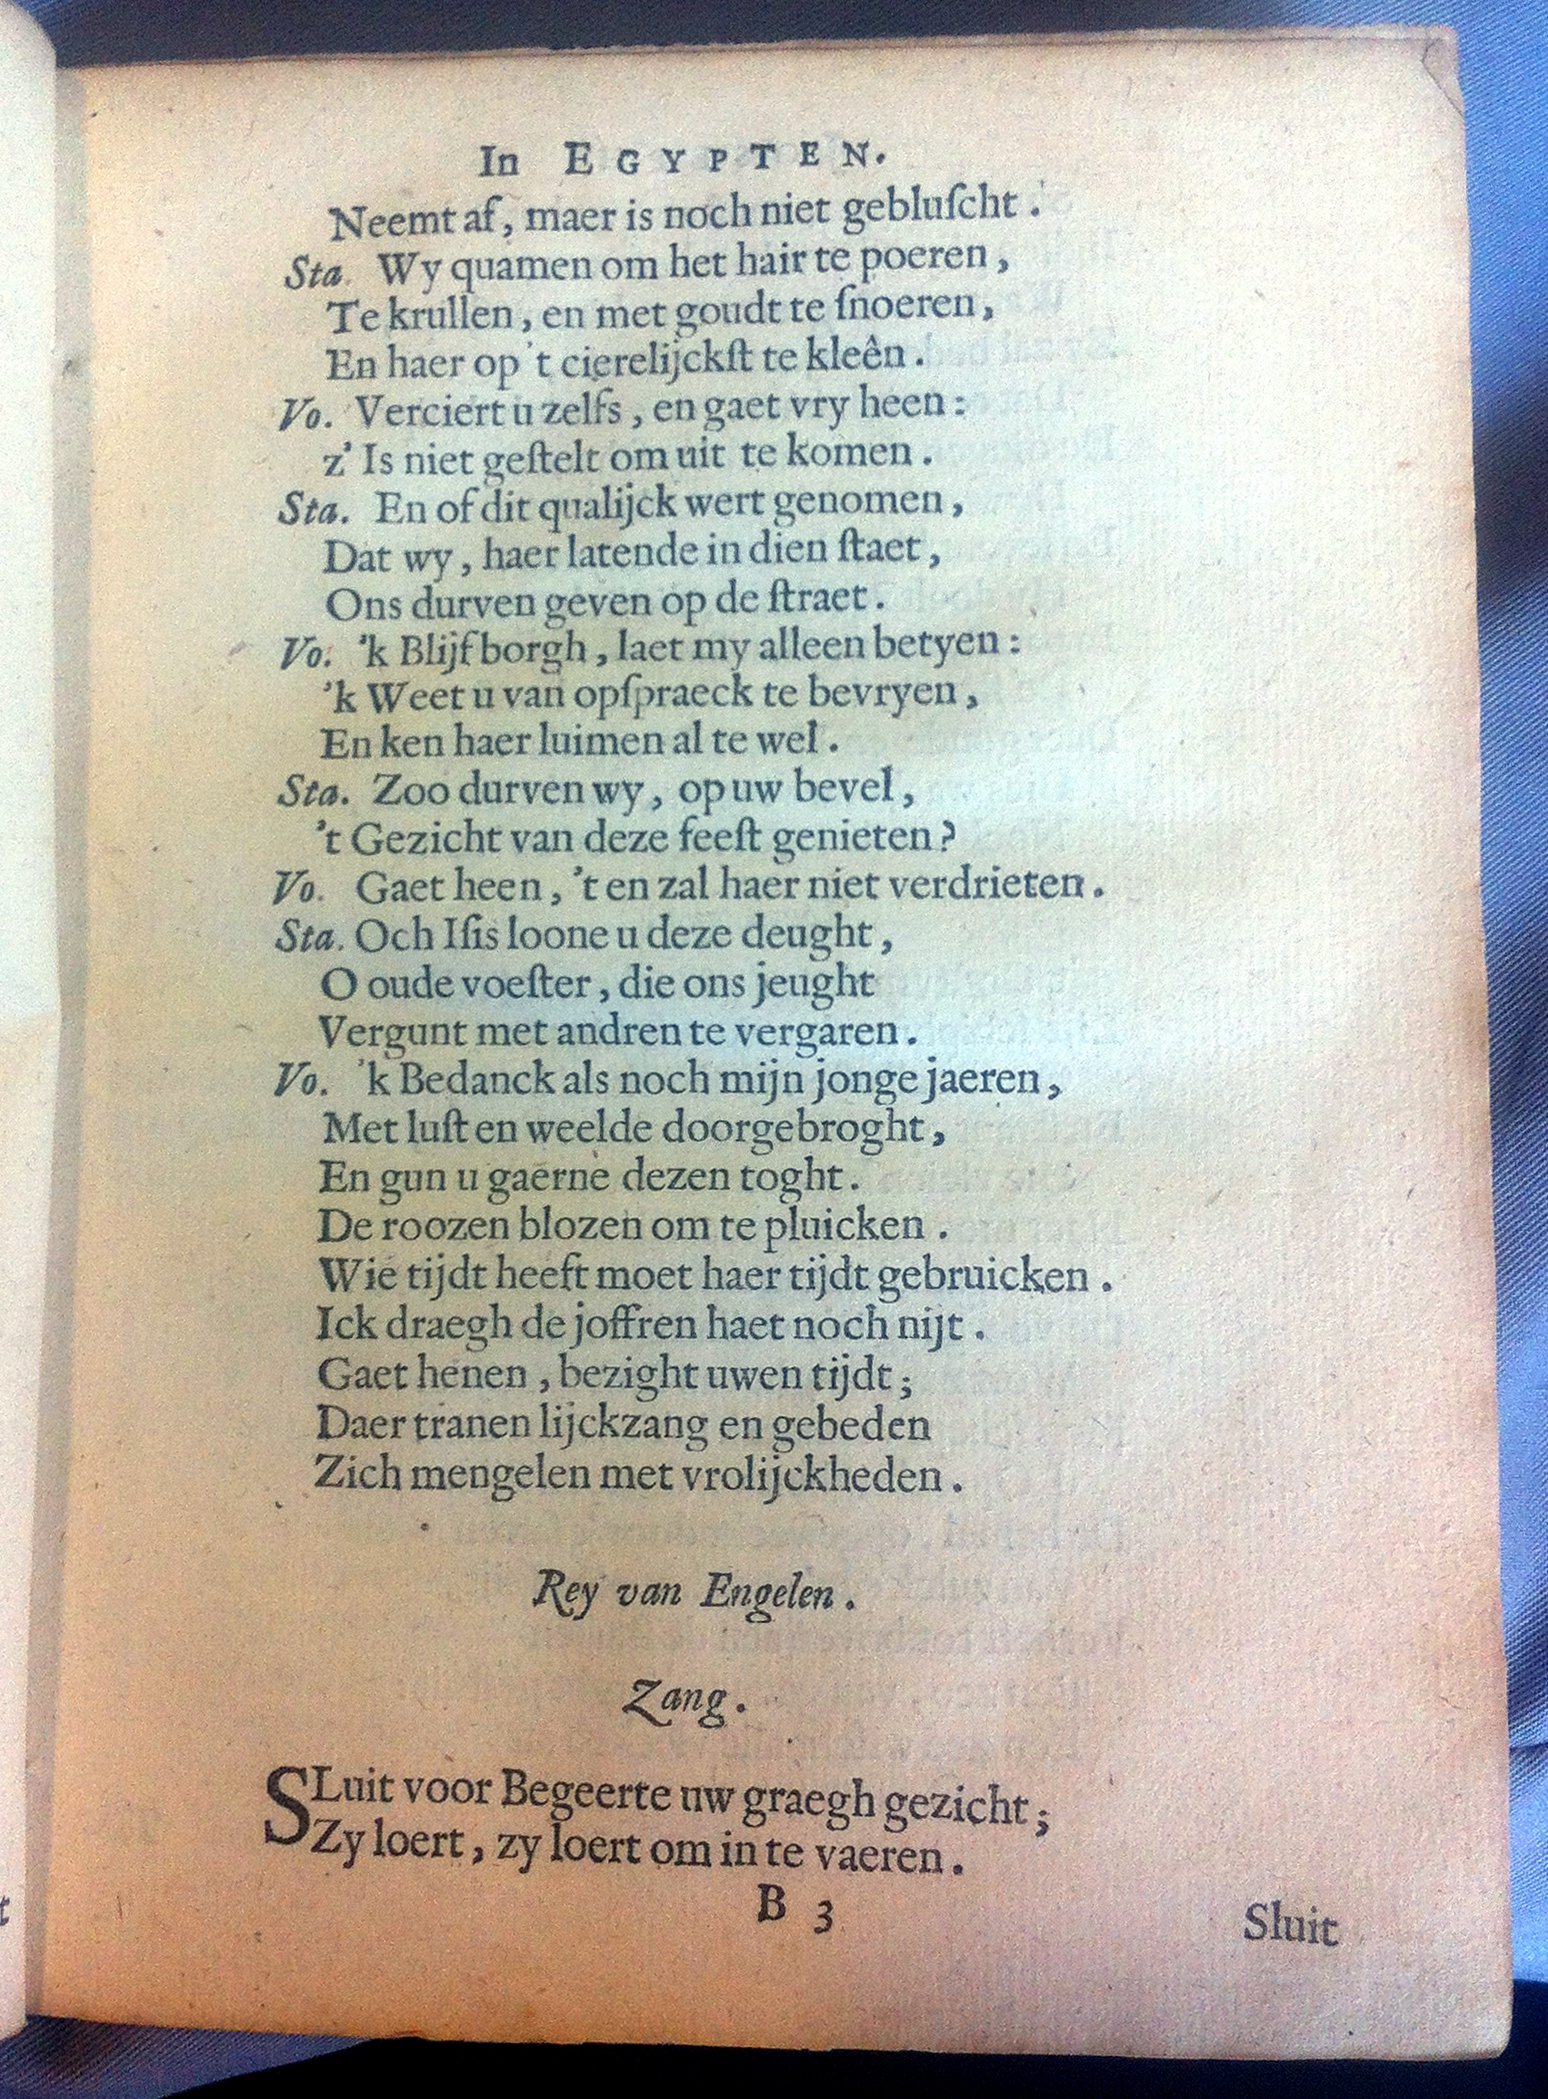 In EGYPTEN.
Neemt af, maer is noch niet gebluſcht.
Sta. Wy quamen om het hair te poeren,
Te krullen, en met goudt te ſnoeren,
En haer op 't cierelijckſt te kleên.
Vo. Verciert u zelfs, en gaet vry heen:
z' Is niet geſtelt om uit te komen.
Sta. En of dit qualijck wert genomen,
Dat wy, haer latende in dien ſtaet,
Ons durven geven op de ſtraet.
Vo. 'k Blijf borgh, laet my alleen betyen:
'k Weet u van opſpraeck te bevryen,
En ken haer luimen al te wel.
Sta. Zoo durven wy, op uw bevel,
't Gezicht van deze feeſt genieten?
Vo. Gaet heen, 't en zal haer niet verdrieten.
Sta. Och Iſis loone u deze deught,
O oude voeſter, die ons jeught
Vergunt met andren te vergaren.
Vo. 'k Bedanck als noch mijn jonge jaeren,
Met luſt en weelde doorgebroght,
En gun u gaerne dezen toght.
De roozen blozen om te pluicken.
Wie tijdt heeft moet haer tijdt gebruicken.
Ick draegh de joffren haet noch nijt.
Gaet henen, bezight uwen tijdt;
Daer tranen lijckzang en gebeden
Zich mengelen met vrolijckheden.
Rey van Engelen.
Zang.
SLuit voor Begeerte uw graegh gezicht;
Zy loert, zy loert om in te vaeren.
B 3
Sluit